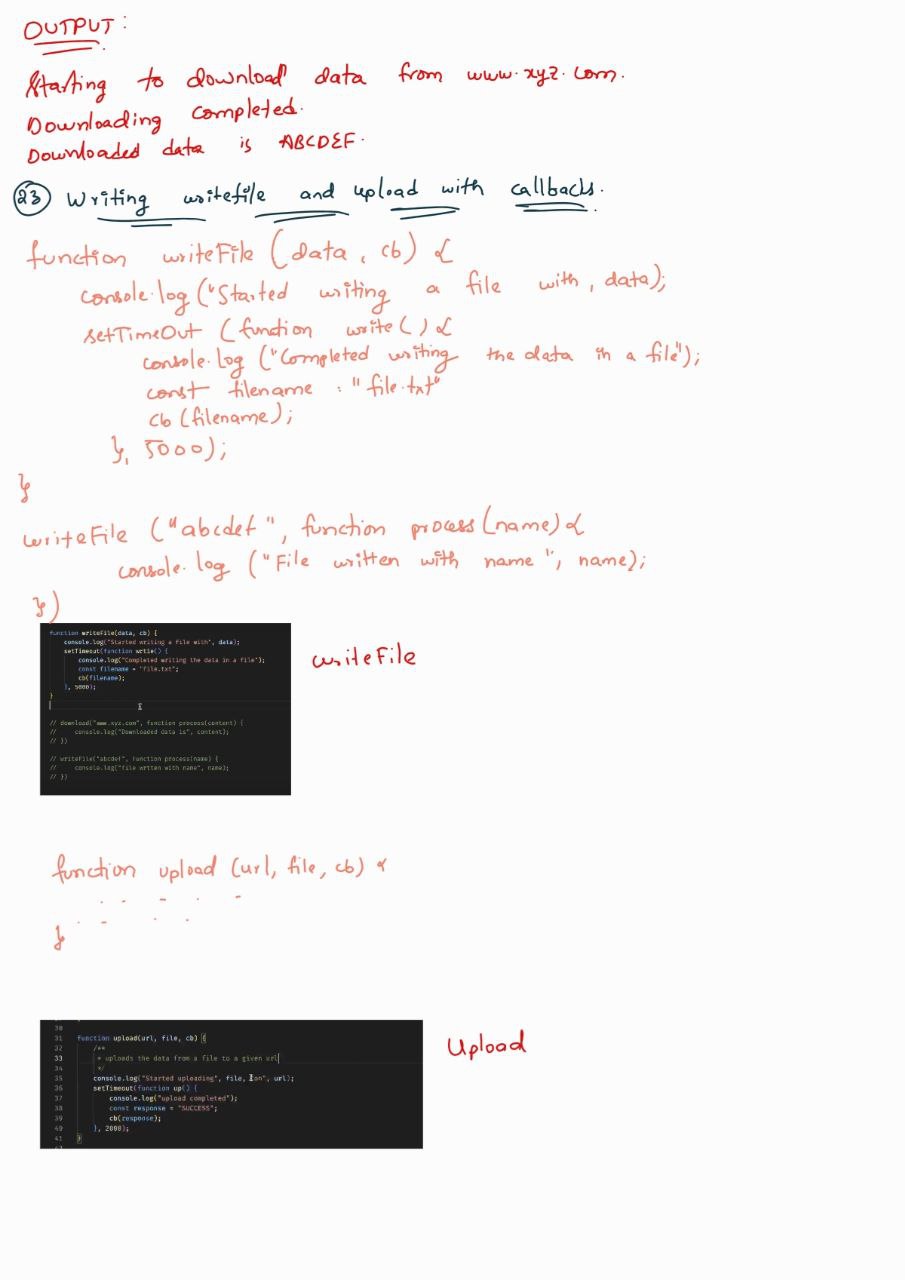 OUTPUT:
Starting to download data from www.xyz.com.
Downloading completed.
Downloaded data is ABCDEF.
23 Writing writefile and upload with callbacks.
function writeFile (data, cb) {
console.log ("Started writing a file with, data);
setTimeOut (function write() {
console.log ("Completed writing the data in a file");
const filename = "file.txt"
cb (filename);
}, 5000);
}
writeFile ("abcdef", function process(name) {
console.log ("File written with name", name);
})
function writeFile(data, cb) {
console.log("Started writing a file with", data);
setTimeout(function write() {
console.log("Completed writing the data in a file");
const filename = "file.txt";
cb(filename);
}, 5000);
}
writeFile
// download("www.xyz.com", function process(content) {
// console.log("Downloaded data is", content);
// })
// writeFile("abcdef", function process(name) {
// console.log("file written with name", name);
// })
function upload (url, file, cb) {
}
30
31 function upload(url, file, cb) {
32 /**
33 * uploads the data from a file to a given url
34 */
35 console.log("Started uploading", file, "on", url);
36 setTimeout(function up() {
37 console.log("upload completed");
38 const response = "SUCCESS";
39 cb(response);
40 }, 2000);
41 }
Upload